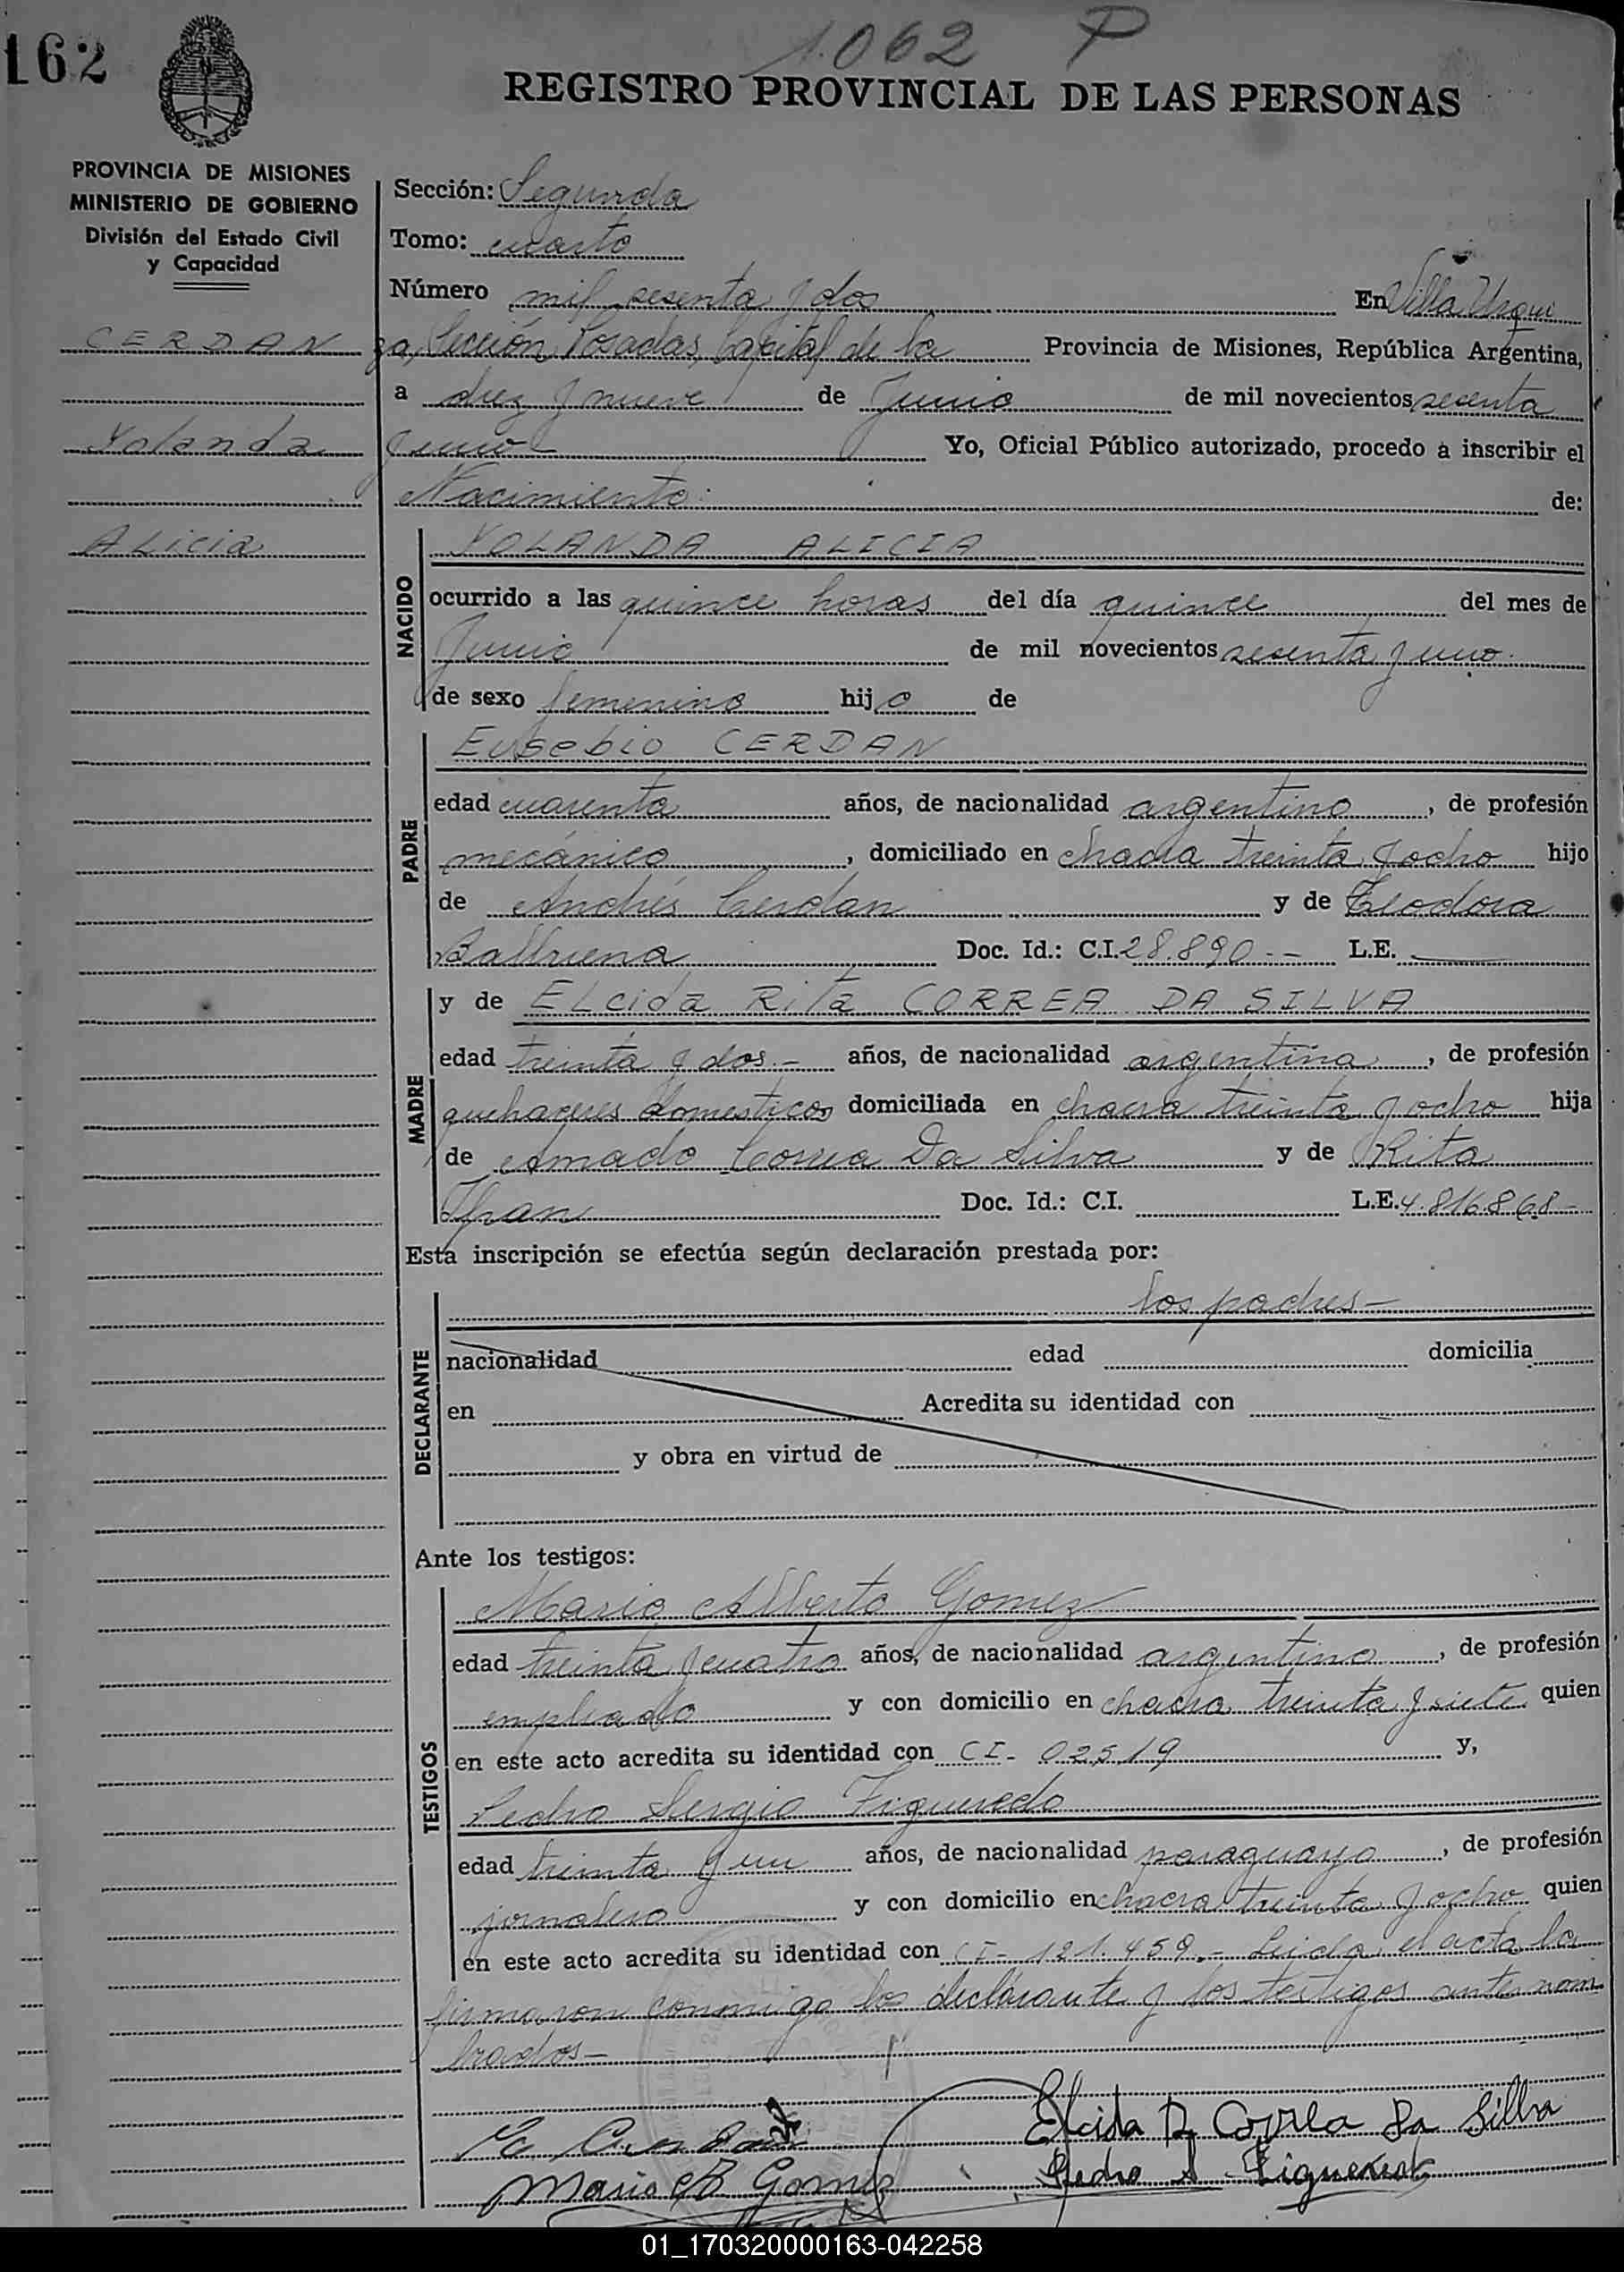 162
1.062 P
REGISTRO PROVINCIAL DE LAS PERSONAS
PROVINCIA DE MISIONES
MINISTERIO DE GOBIERNO
División del Estado Civil
y Capacidad
CERDAN
Yolanda
Alicia
Sección: Segunda
Tomo: cuarto
Número mil sesenta y dos En Villa Urqui
za, Sección Posadas, Capital de la Provincia de Misiones, República Argentina,
a diez y nueve de Junio de mil novecientos sesenta
y uno Yo, Oficial Público autorizado, procedo a inscribir el
Nacimiento: de:
NACIDO
YOLANDA ALICIA
ocurrido a las quince horas del día quince del mes de
Junio de mil novecientos sesenta y uno.
de sexo femenino hijo de
PADRE
Eusebio CERDAN
edad cuarenta años, de nacionalidad argentino, de profesión
mecánico, domiciliado en chacra treinta y ocho hijo
de Andrés Cerdan y de Teodora
Balbuena Doc. Id.: C.I. 28.890.-- L.E.
MADRE
y de ELcida Rita CORREA DA SILVA
edad treinta y dos.- años, de nacionalidad argentina, de profesión
quehaceres domesticos domiciliada en chacra treinta y ocho hija
de Amado Correa Da Silva y de Rita
Ifran Doc. Id.: C.I. L.E. 4.816.868-
Esta inscripción se efectúa según declaración prestada por:
DECLARANTE
los padres-
nacionalidad edad domicilia
en Acredita su identidad con
y obra en virtud de
Ante los testigos:
TESTIGOS
Mario Alberto Gomez
edad treinta y cuatro años, de nacionalidad argentino, de profesión
empleado y con domicilio en chacra treinta y siete quien
en este acto acredita su identidad con CI- 02519 y,
Pedro Sergio Figueredo
edad treinta y un años, de nacionalidad paraguayo, de profesión
jornalero y con domicilio en chacra treinta y ocho quien
en este acto acredita su identidad con CI- 121.459.- Leida el acta la
firmaron conmigo los declarante y los testigos ante nom
brados-
Elcida R Correa Da Silba
Mario A Gomez
Pedro S Figueredo
01_170320000163-042258